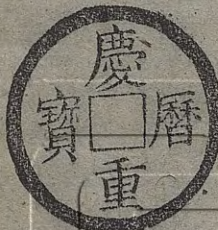 慶曆重寶